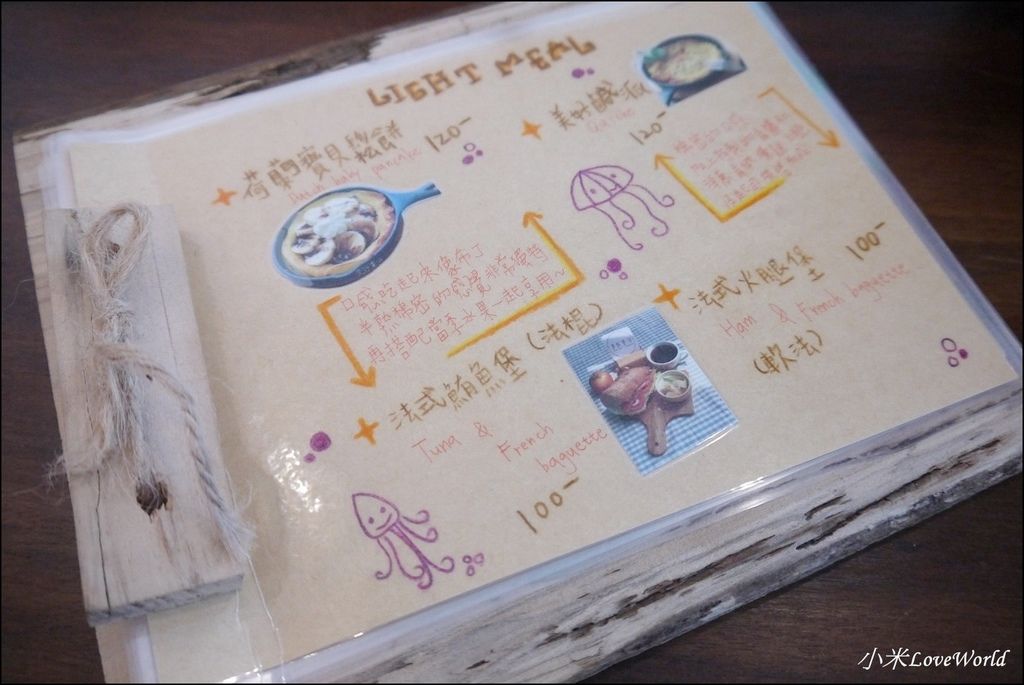 LIGHT MEAL
荷蘭寶貝鬆餅 120-
Dutch baby pancake
口感吃起來像布丁
半熟綿密的感覺非常獨特
再搭配當季水果一起享用~
美好鹹派
120-
法式鮪魚堡(法棍)
Tuna &
French
baguette
100-
法式火腿堡 100-
Ham & French baguette
(軟法)
小米LoveWorld